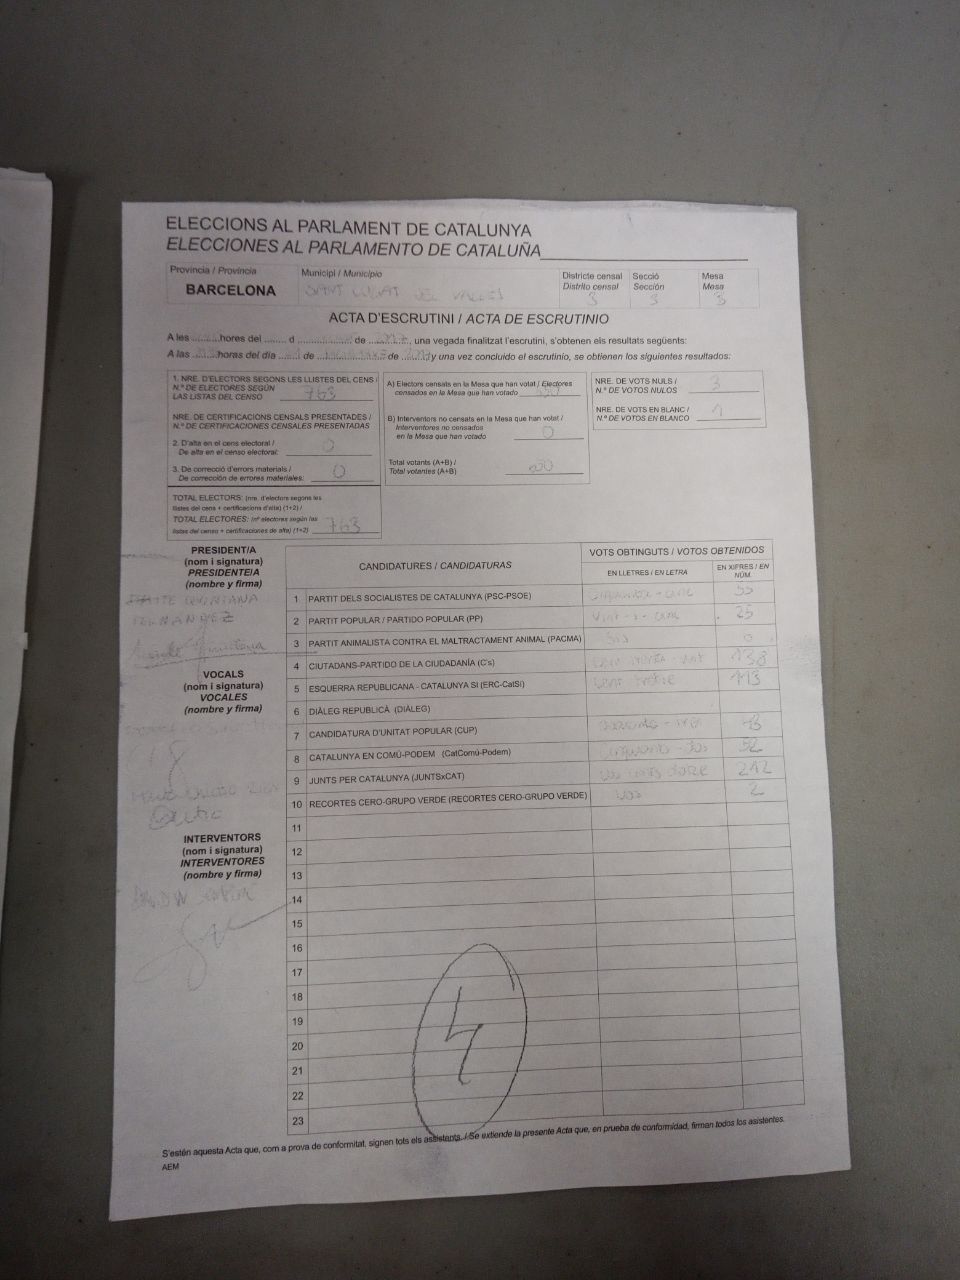 ELECCIONS AL PARLAMENT DE CATALUNYA
ELECCIONES AL PARLAMENTO DE CATALUÑA
Província / Provincia
BARCELONA
Municipi / Municipio
SANT CUGAT DEL VALLÈS
Districte censal
Distrito censal
3
Secció
Sección
3
Mesa
Mesa
3
ACTA D'ESCRUTINI / ACTA DE ESCRUTINIO
A les hores del d de , una vegada finalitzat l'escrutini, s'obtenen els resultats següents:
A las horas del día de de y una vez concluido el escrutinio, se obtienen los siguientes resultados:
1. NRE. D'ELECTORS SEGONS LES LLISTES DEL CENS /
N.º DE ELECTORES SEGÚN
LAS LISTAS DEL CENSO 763
NRE. DE CERTIFICACIONS CENSALS PRESENTADES /
N.º DE CERTIFICACIONES CENSALES PRESENTADAS
2. D'alta en el cens electoral /
De alta en el censo electoral: 0
3. De correcció d'errors materials /
De corrección de errores materiales: 0
TOTAL ELECTORS: (nre. d'electors segons les
llistes del cens + certificacions d'alta) (1+2) /
TOTAL ELECTORES: (nº electores según las
listas del censo + certificaciones de alta) (1+2) 763
A) Electors censats en la Mesa que han votat / Electores
censados en la Mesa que han votado
B) Interventors no censats en la Mesa que han votat /
Interventores no censados
en la Mesa que han votado 0
Total votants (A+B) /
Total votantes (A+B)
NRE. DE VOTS NULS /
N.º DE VOTOS NULOS 3
NRE. DE VOTS EN BLANC /
N.º DE VOTOS EN BLANCO 1
PRESIDENT/A
(nom i signatura)
PRESIDENTE/A
(nombre y firma)
QUINTANA
VOCALS
(nom i signatura)
VOCALES
(nombre y firma)
INTERVENTORS
(nom i signatura)
INTERVENTORES
(nombre y firma)
CANDIDATURES / CANDIDATURAS
VOTS OBTINGUTS / VOTOS OBTENIDOS
EN LLETRES / EN LETRA
EN XIFRES / EN NÚM.
1 PARTIT DELS SOCIALISTES DE CATALUNYA (PSC-PSOE) 55
2 PARTIT POPULAR / PARTIDO POPULAR (PP) 25
3 PARTIT ANIMALISTA CONTRA EL MALTRACTAMENT ANIMAL (PACMA) sis 6
4 CIUTADANS-PARTIDO DE LA CIUDADANÍA (C's) 138
5 ESQUERRA REPUBLICANA - CATALUNYA SI (ERC-CatSí) 113
6 DIÀLEG REPUBLICÀ (DIÀLEG)
7 CANDIDATURA D'UNITAT POPULAR (CUP) 43
8 CATALUNYA EN COMÚ-PODEM (CatComú-Podem) cinquanta-dos 52
9 JUNTS PER CATALUNYA (JUNTSxCAT) dos cents dotze 212
10 RECORTES CERO-GRUPO VERDE (RECORTES CERO-GRUPO VERDE) dos 2
11
12
13
14
15
16
17
18
19
20
21
22
23
S'estén aquesta Acta que, com a prova de conformitat, signen tots els assistents. / Se extiende la presente Acta que, en prueba de conformidad, firman todos los asistentes.
AEM